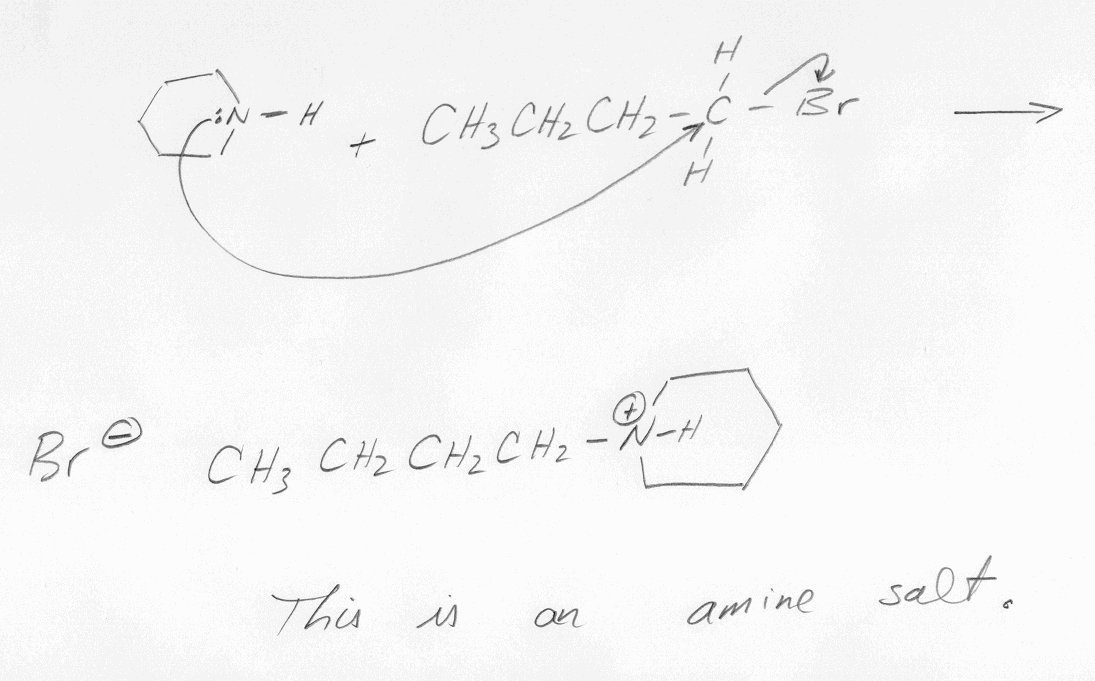 H
:N - H + CH3CH2CH2 - C - Br
H
Br⊖ CH3 CH2 CH2 CH2 - N⊕ - H
This is an amine salt.